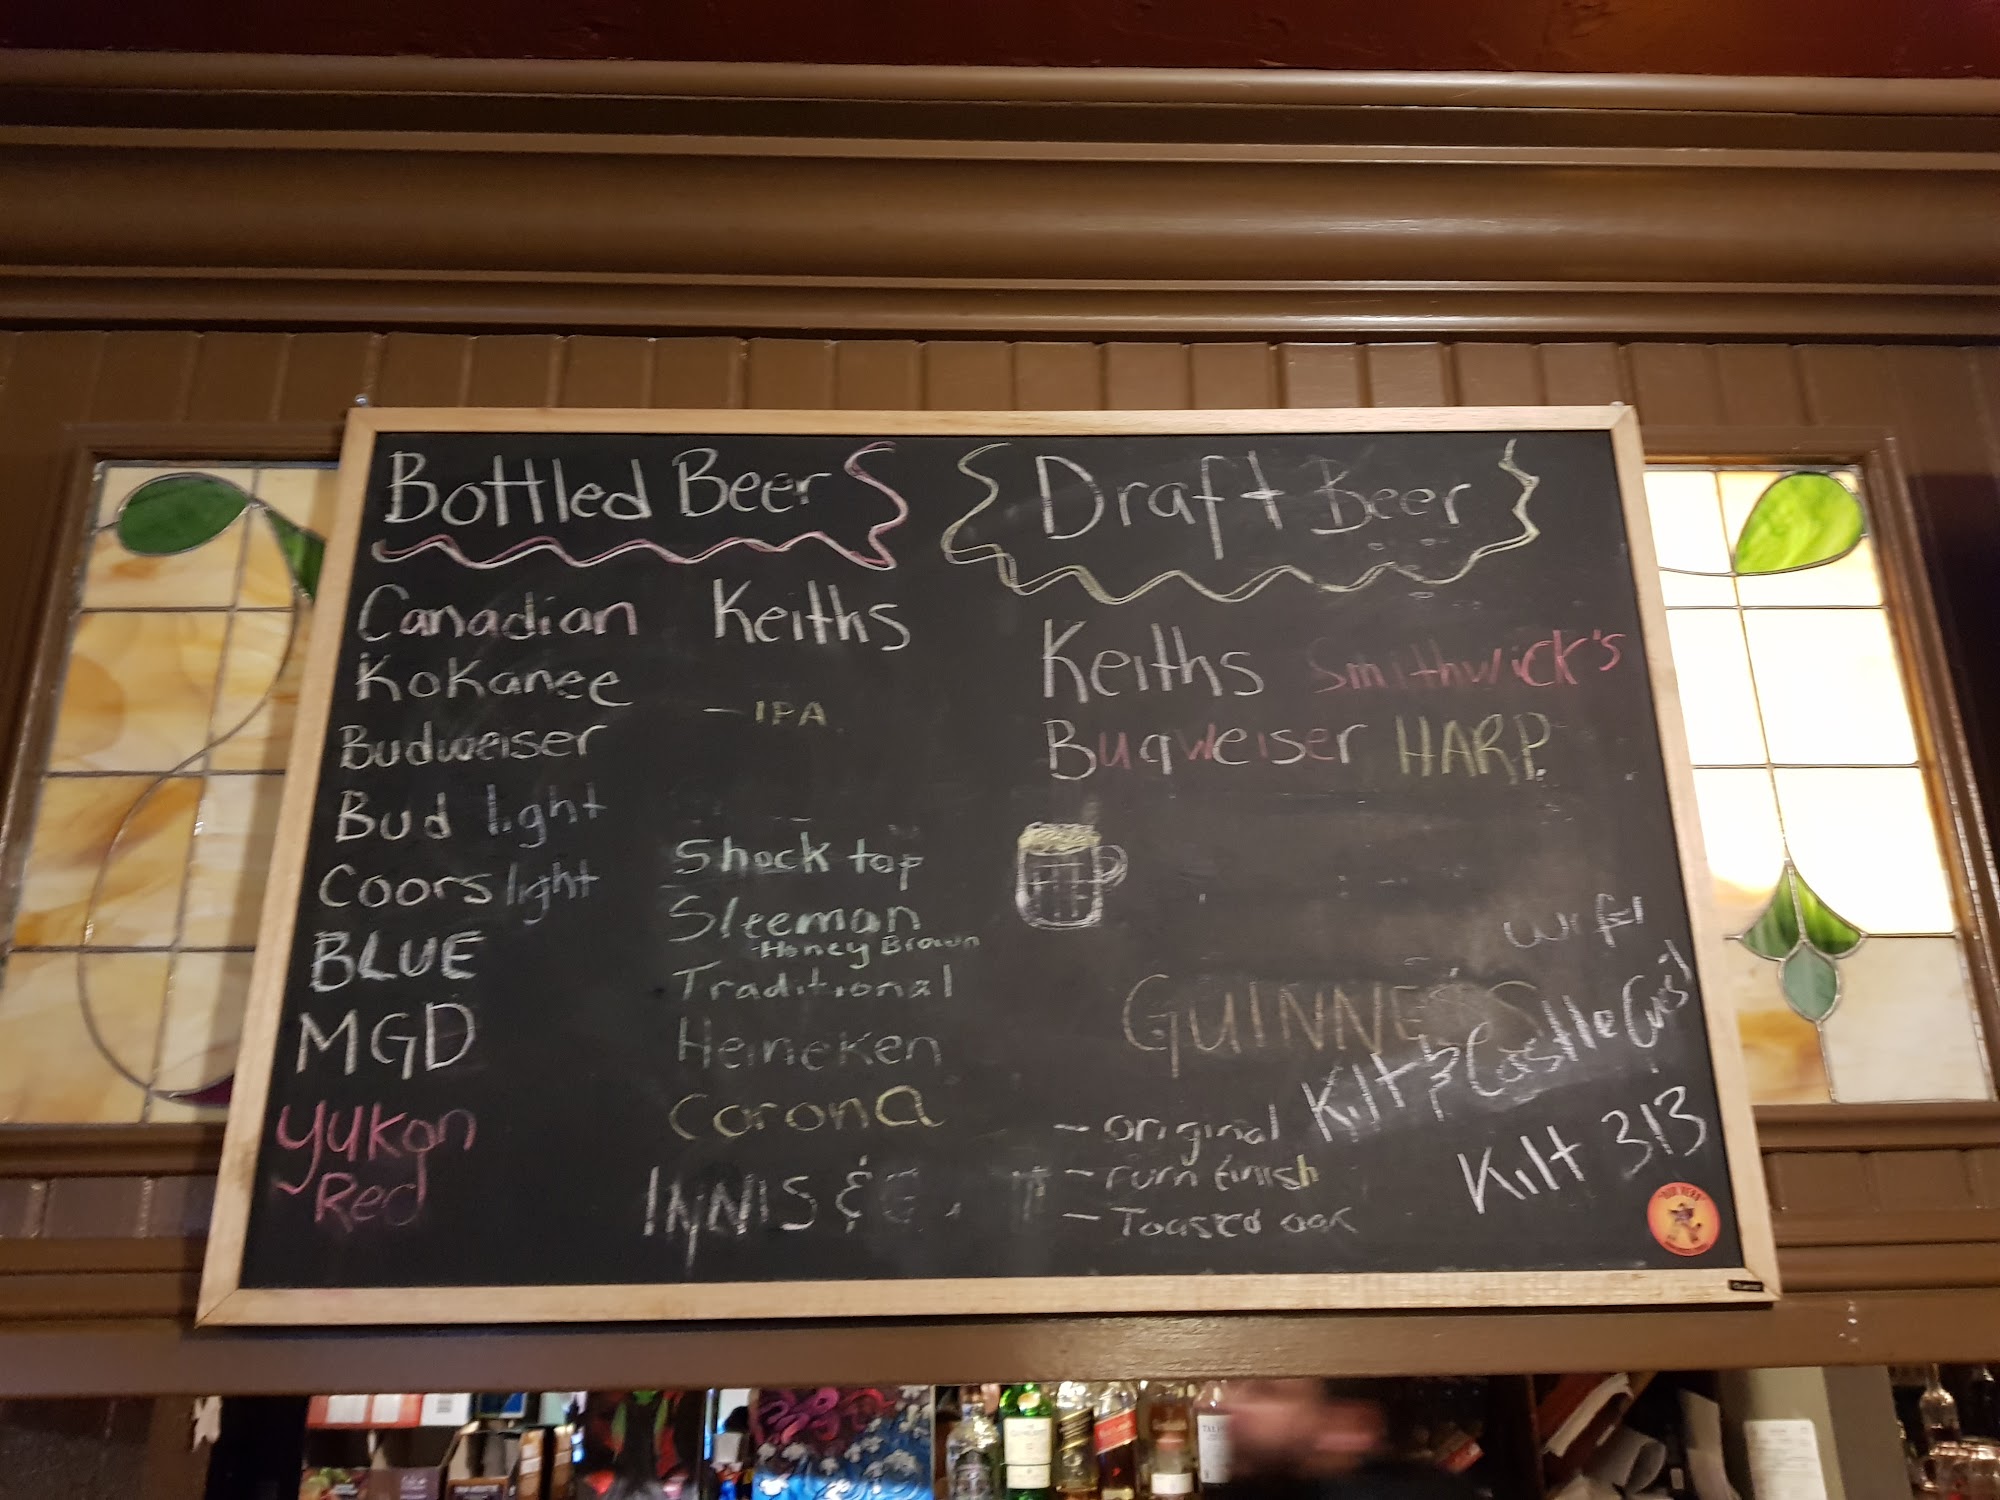 Bottled Beer
Canadian
Kokanee
Budweiser
Bud light
Coors light
BLUE
MGD
Yukon
Red
Keiths
- IPA
Shock top
Sleeman
-Honey Brown
Traditional
Heineken
Corona
INNIS &
- original
- rum finish
- Toasted oak
Draft Beer
Keiths Smithwick's
Buqweiser HARP
GUINNESS
wifi
Kilt & Castle Guest
Kilt 313